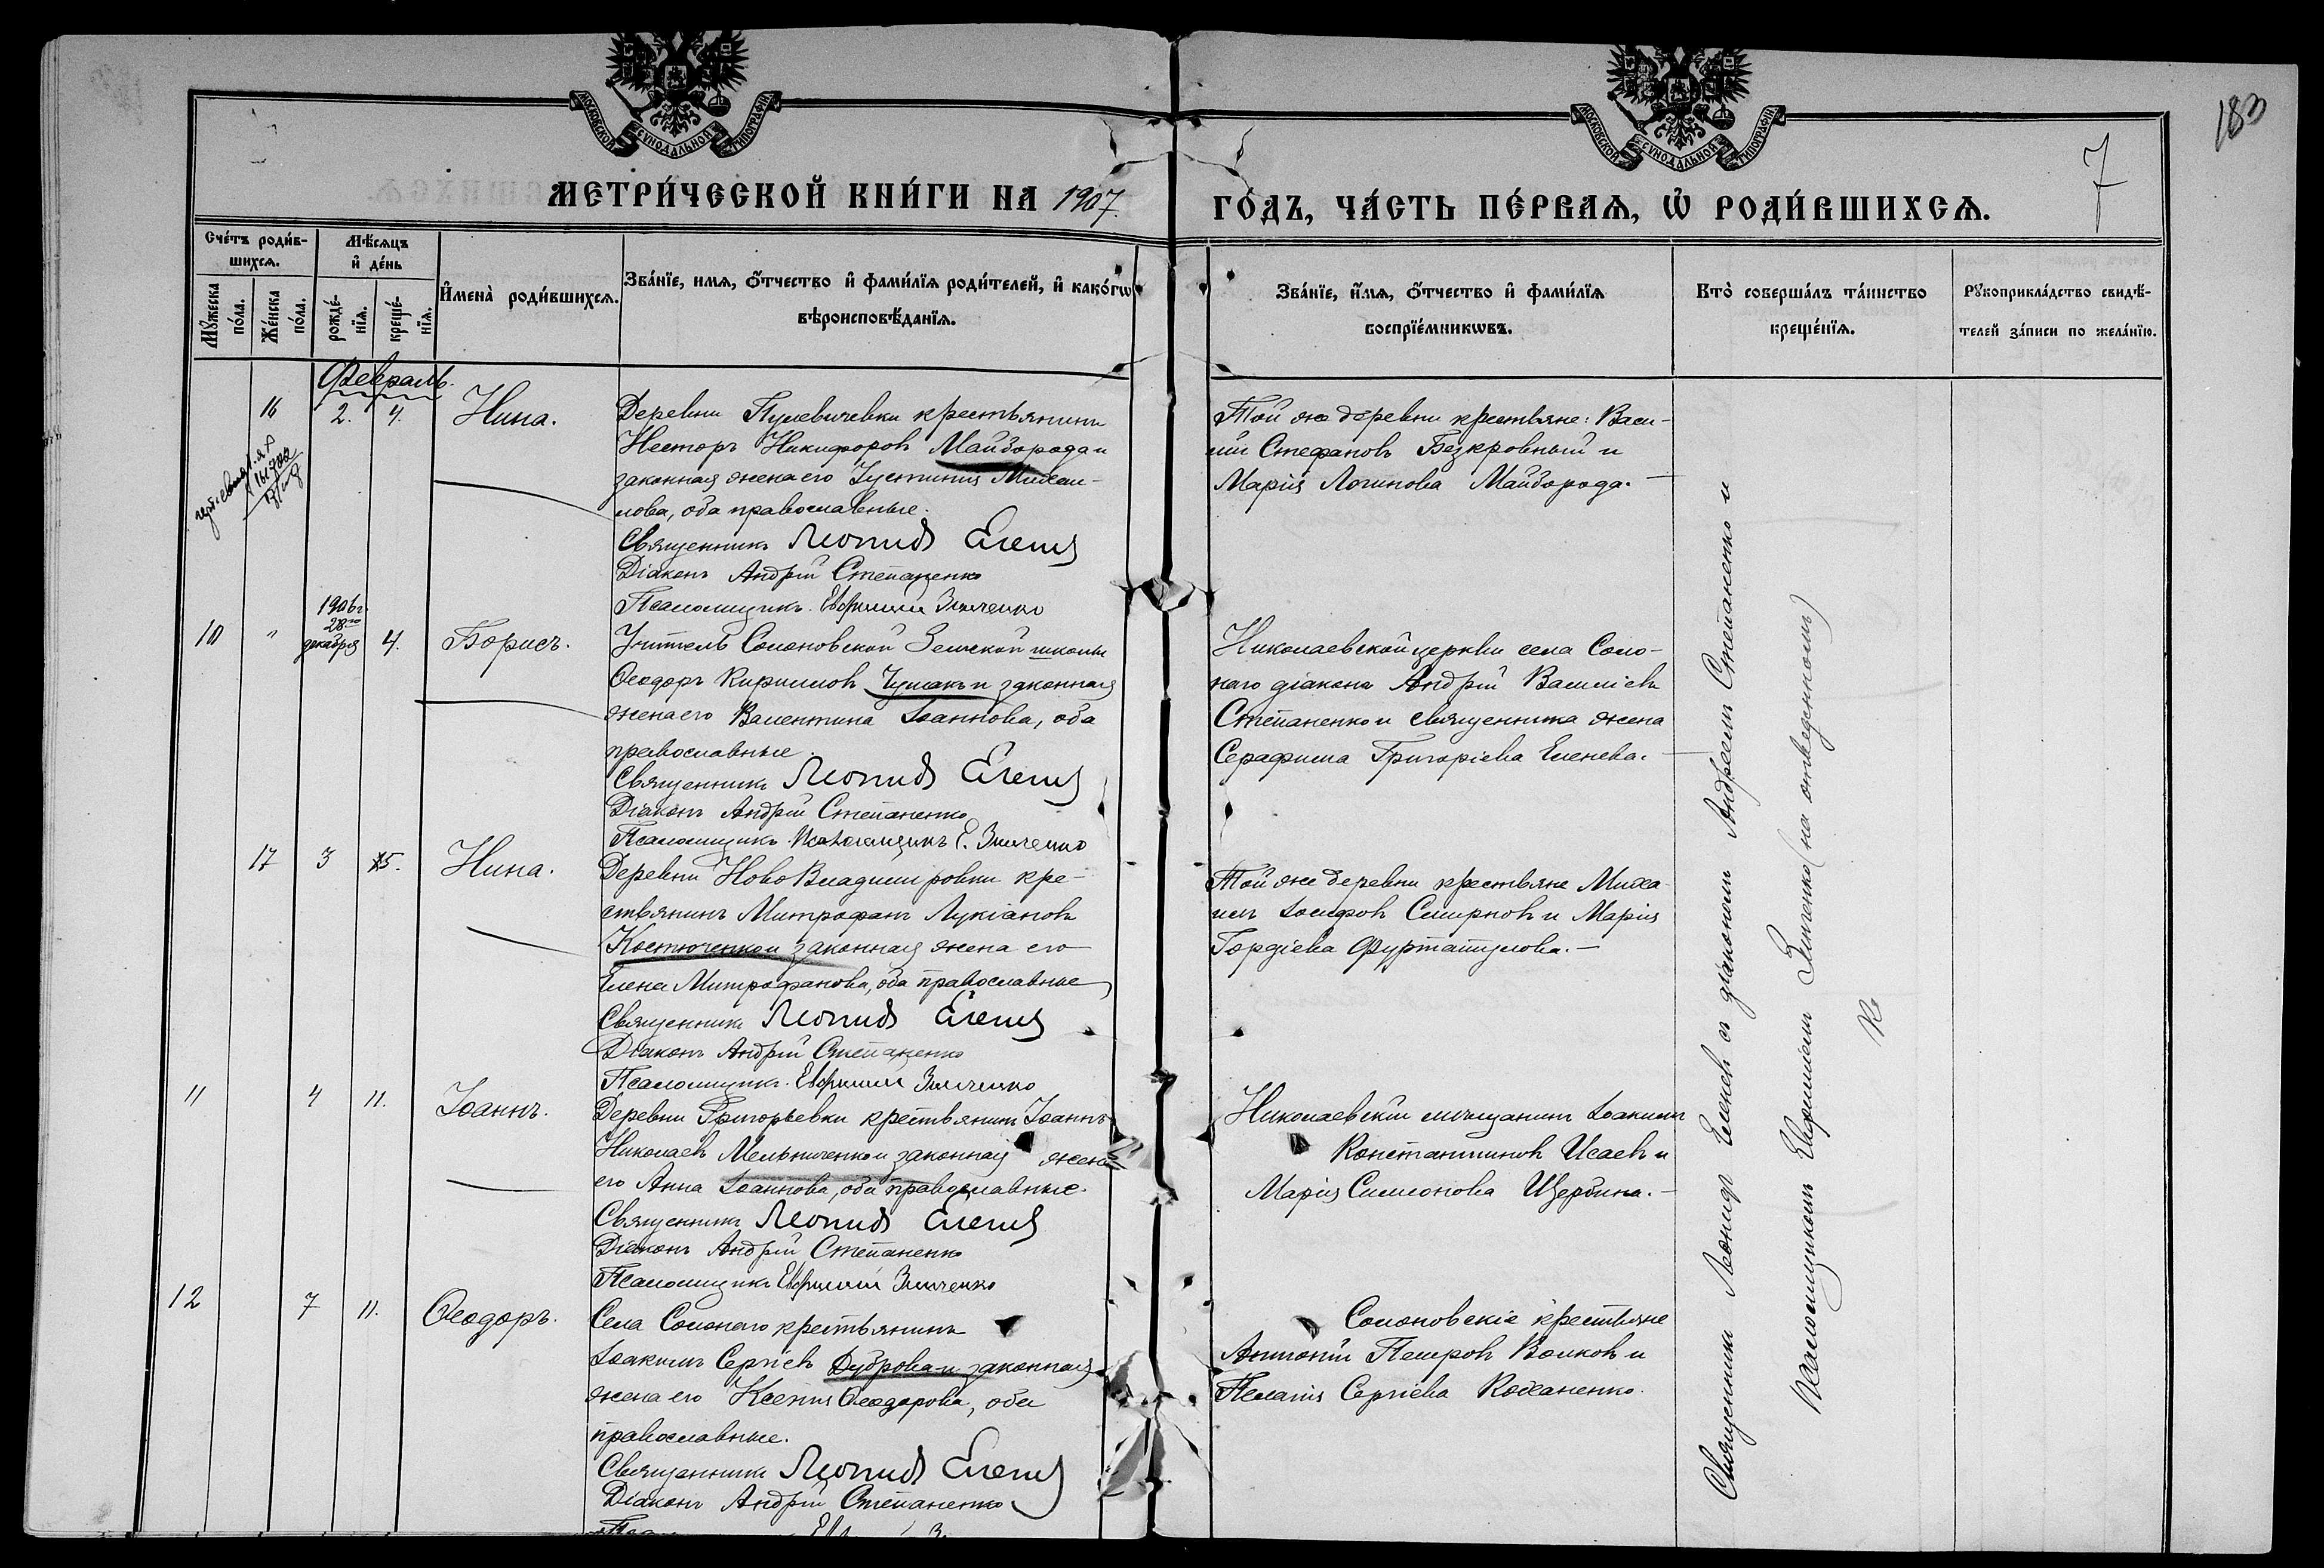 МОСКОВСКОЙ СУНОДАЛЬНОЙ ТИПОГРАФІИ
МОСКОВСКОЙ СУНОДАЛЬНОЙ ТИПОГРАФІИ
183
7
МЕТРИ́ЧЕСКОЙ КНИ́ГИ НА 1907
ГО́ДЪ, ЧА́СТЬ ПЕ́РВАѦ, Ѡ҆ РОДИ́ВШИХСѦ.
Сче́тъ роди́в-
шихсѧ.
Мѣ́сѧцъ
и҆ де́нь
Мꙋ́жеска по́ла.
Же́нска по́ла.
рожде́-
нїѧ.
креще́-
нїѧ.
И҆мена̀ роди́вшихсѧ.
Зва́нїе, имѧ, ѻ҆́тчество и҆ фами́лїѧ роди́телей, и҆ како́гѡ
вѣроисповѣ́данїѧ.
Зва́нїе, и҆́мѧ, ѻ҆́тчество и҆ фами́лїѧ
воспрїе́мникѡвъ.
Кто̀ соверша́лъ та́инство
креще́нїѧ.
Рꙋкоприкла́дство свидѣ́-
телей за́писи по жела́нїю.
Февраль.
16
2.
4.
Нина.
Деревни крестьянинъ
Несторъ Никифоровъ Майборода и
законная жена его Іустинія Михаи-
лова, оба православные.
Священникъ Леонидъ Еленев
Діаконъ Андрій Степаненко
Псаломщикъ Евфимій Зинченко
Той же деревни крестьяне: Васи-
лій Стефановъ Безкровный и
Марія Логинова Майборода.—
10
"
1906 г.
28го
декабря
4.
Борисъ.
Учитель Солоновской Земской школы
Ѳеодоръ Кирилловъ Чумакъ и законная
жена его Валентина Іоаннова, оба
православные.
Священникъ Леонидъ Еленев
Діаконъ Андрій Степаненко
Псаломщикъ Псаломщикъ Е. Зинченко
Николаевской церкви села Соло-
наго діаконъ Андрій Василіевъ
Степаненко и священника жена
Серафима Григоріева Еленева.—
17
3
5.
Нина.
Деревни НовоВладимировки кре-
стьянинъ Митрофанъ Лукіановъ
Костюченко и законная жена его
Елена Митрофанова, оба православные
Священникъ Леонидъ Еленев
Діаконъ Андрій Степаненко
Псаломщикъ Евфимій Зинченко
Той же деревни крестьяне Миха-
илъ Іосифовъ Смирновъ и Марія
Гордіева Фурташулова.—
11
4
11.
Іоаннъ.
Деревни Григорьевки крестьянинъ Іоаннъ
Николаевъ Мельниченко и законная жена
его Анна Іоаннова, оба православные.
Священникъ Леонидъ Еленев
Діаконъ Андрій Степаненко
Псаломщикъ Евфимій Зинченко
Николаевскій мѣщанинъ Іоакимъ
Константиновъ Исаевъ и
Марія Симеонова Щербина.—
12
7
11.
Ѳеодоръ.
Села Солонаго крестьянинъ
Іоакимъ Сергіевъ Дуброва и законная
жена его Ксенія Ѳеодорова, оба
православные.
Священникъ Леонидъ Еленев
Діаконъ Андрій Степаненко
Солоновскіе крестьяне
Антоній Петровъ Волковъ и
Пелагія Сергіева Коханенко.
Священникъ Леонидъ Еленевъ съ діакономъ Андреемъ Степаненко и
Псаломщикомъ Евфиміемъ Зинченко (на отведенномъ)